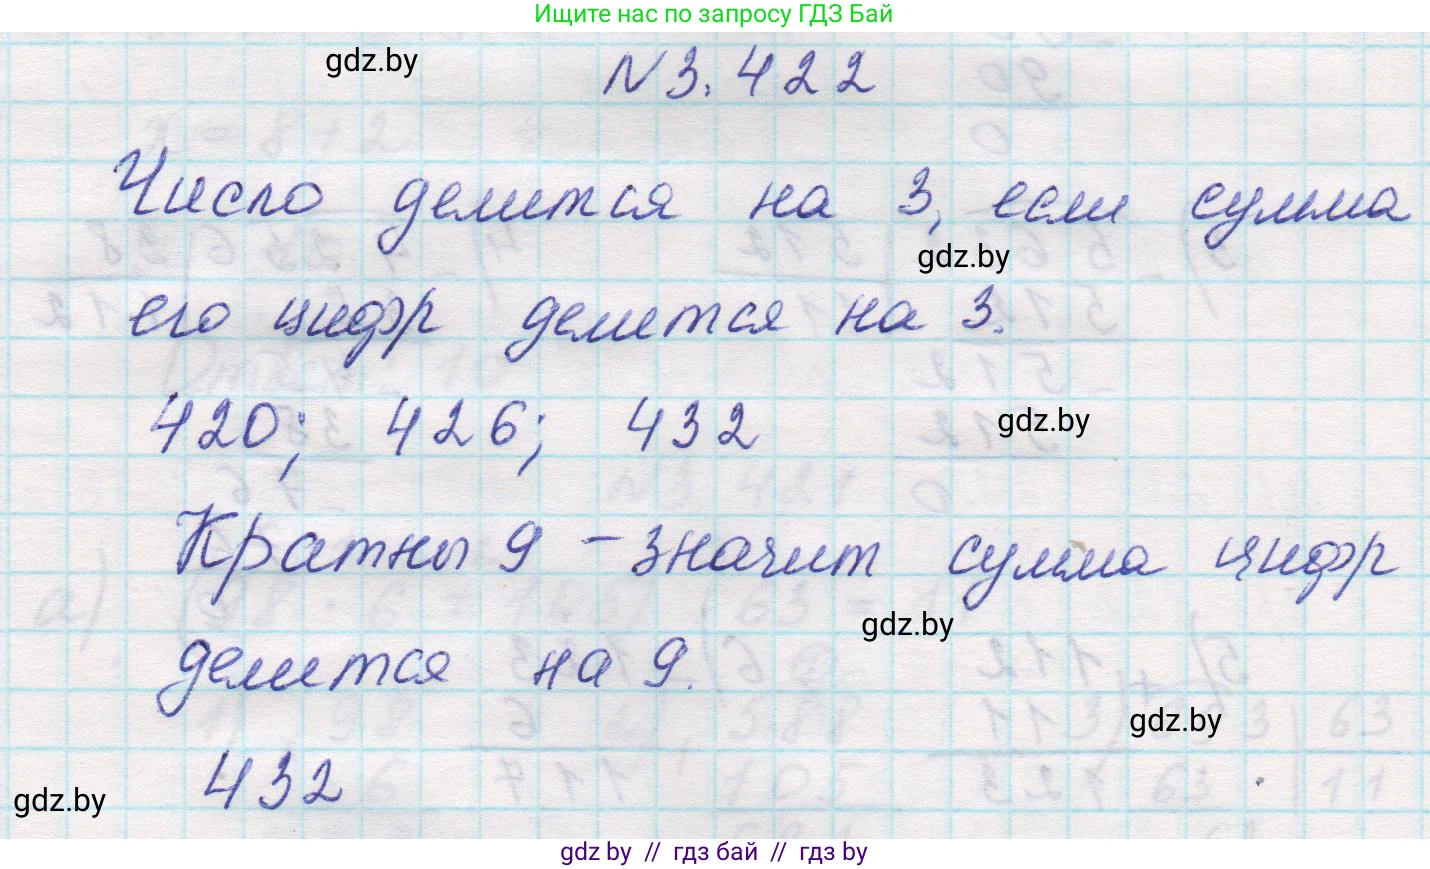 Ищите нас по запросу ГДЗ Бай
gdz.by
N 3.422
Число делится на 3, если сумма
gdz.by
его цифр делится на 3.
420; 426; 432
gdz.by
Кратны 9 – значит сумма цифр
gdz.by
делится на 9.
gdz.by
432
gdz.by
gdz by // гдз бай // гдз by